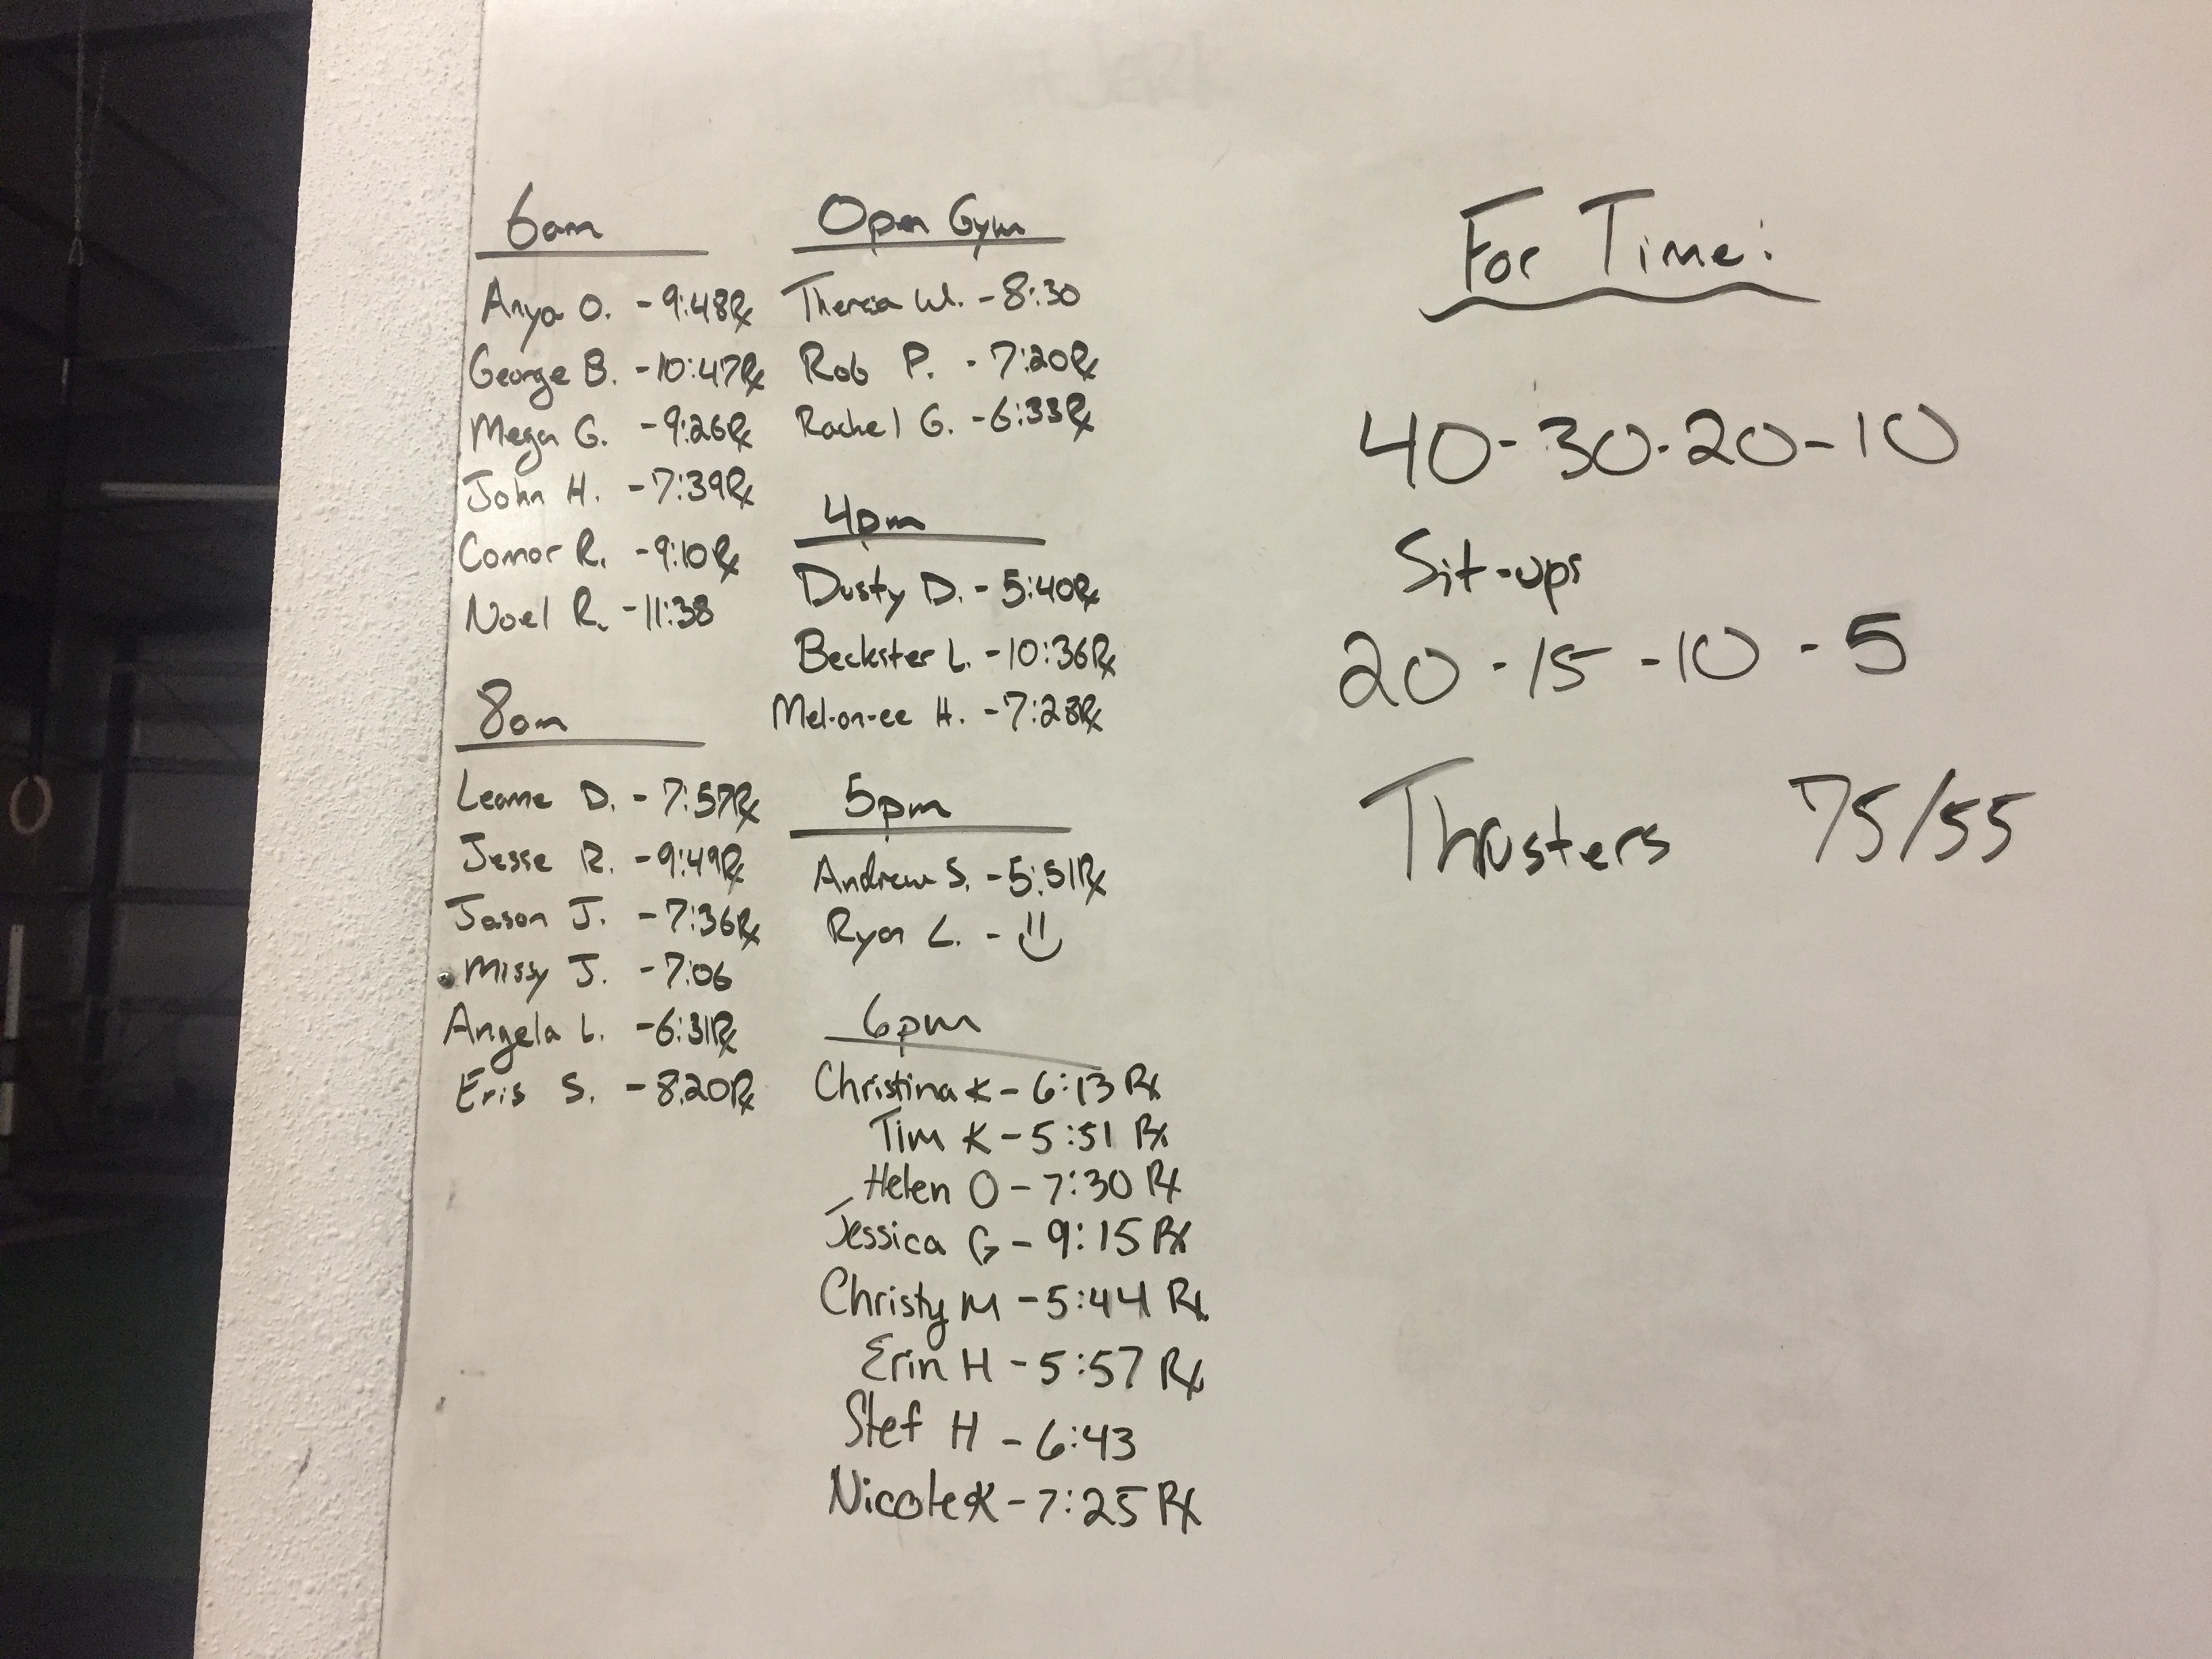 6am
Anya O. - 9:48Rx
George B. - 10:47Rx
Megan G. - 9:26Rx
John H. - 7:39Rx
Connor R. - 9:10Rx
Noel R. - 11:38
8am
Leanne D. - 7:57Rx
Jesse R. - 9:49Rx
Jason J. - 7:36Rx
Missy J. - 7:06
Angela L. - 6:31Rx
Eris S. - 8:20Rx
Open Gym
Theresa W. - 8:30
Rob P. - 7:20Rx
Rachel G. - 6:33Rx
4pm
Dusty D. - 5:40Rx
Beckster L. - 10:36Rx
Mel-on-ee H. - 7:28Rx
5pm
Andrew S. - 5:51Rx
Ryan L. -
6pm
Christina K - 6:13 Rx
Tim K - 5:51 Rx
Helen O - 7:30 Rx
Jessica G - 9:15 Rx
Christy M - 5:44 Rx
Erin H - 5:57 Rx
Stef H - 6:43
Nicole K - 7:25 Rx
For Time:
40-30-20-10
Sit-ups
20-15-10-5
Thrusters 75/55